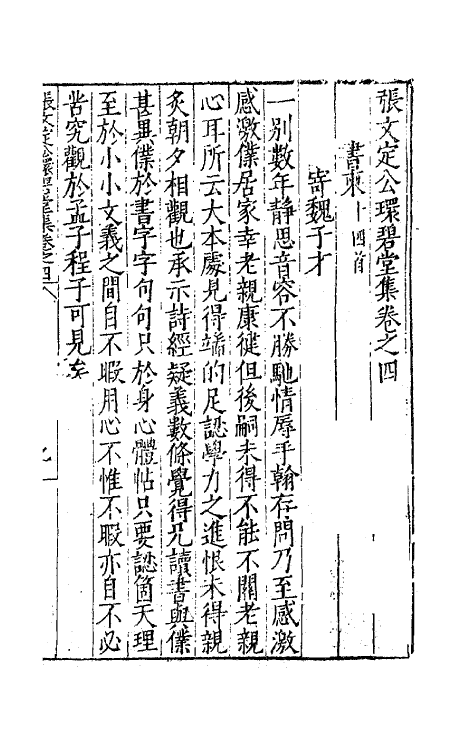 張文定公環碧堂集卷之四
書柬十四首
寄魏子才
一別數年靜思音容不勝馳情辱手翰存問乃至感激
感激僕居家幸老親康健但後嗣未得不能不關老親
心耳所云大本處見得端的足認學力之進恨未得親
炙朝夕相觀也承示詩經疑義數條覺得兄讀書與僕
甚異僕於書字字句句只於身心體帖只要認箇天理
至於小小文義之間自不暇用心不惟不暇亦自不必
甞究觀於孟子程子可見矣
張文定公環碧堂集卷之四